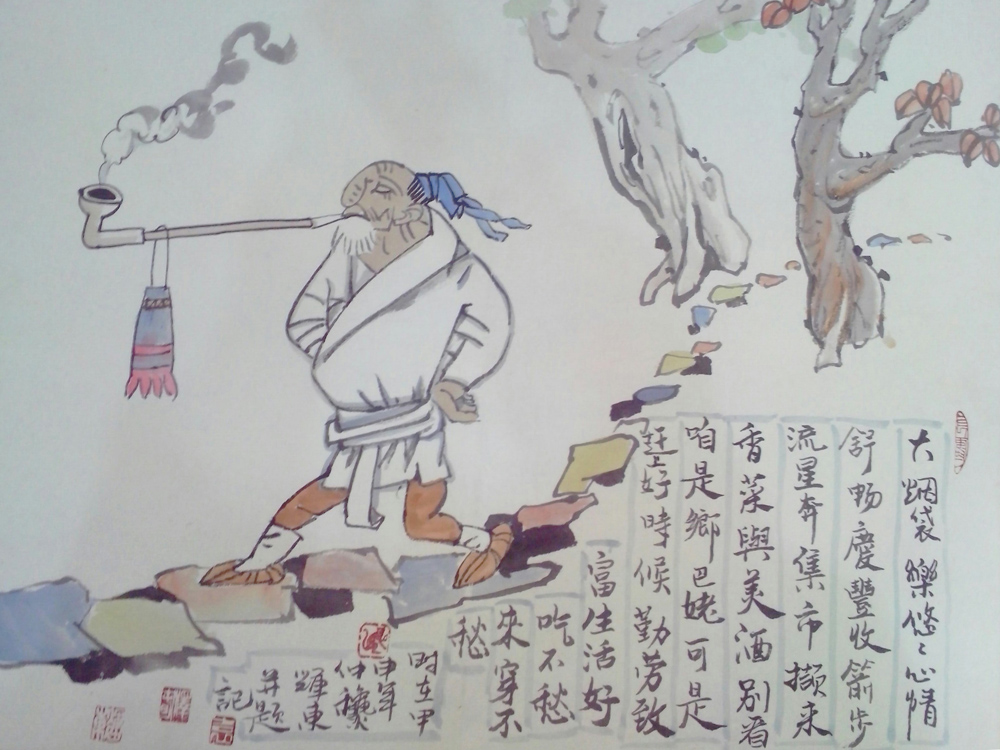 大烟袋樂悠々心情
舒畅慶豐收箭步
流星奔集市擷来
香菜與美酒别看
咱是鄉巴姥可是
赶上好時候勤劳致
富生活好
吃不愁
來穿不
愁
时在甲
申年
仲龝
輝東
并题
記